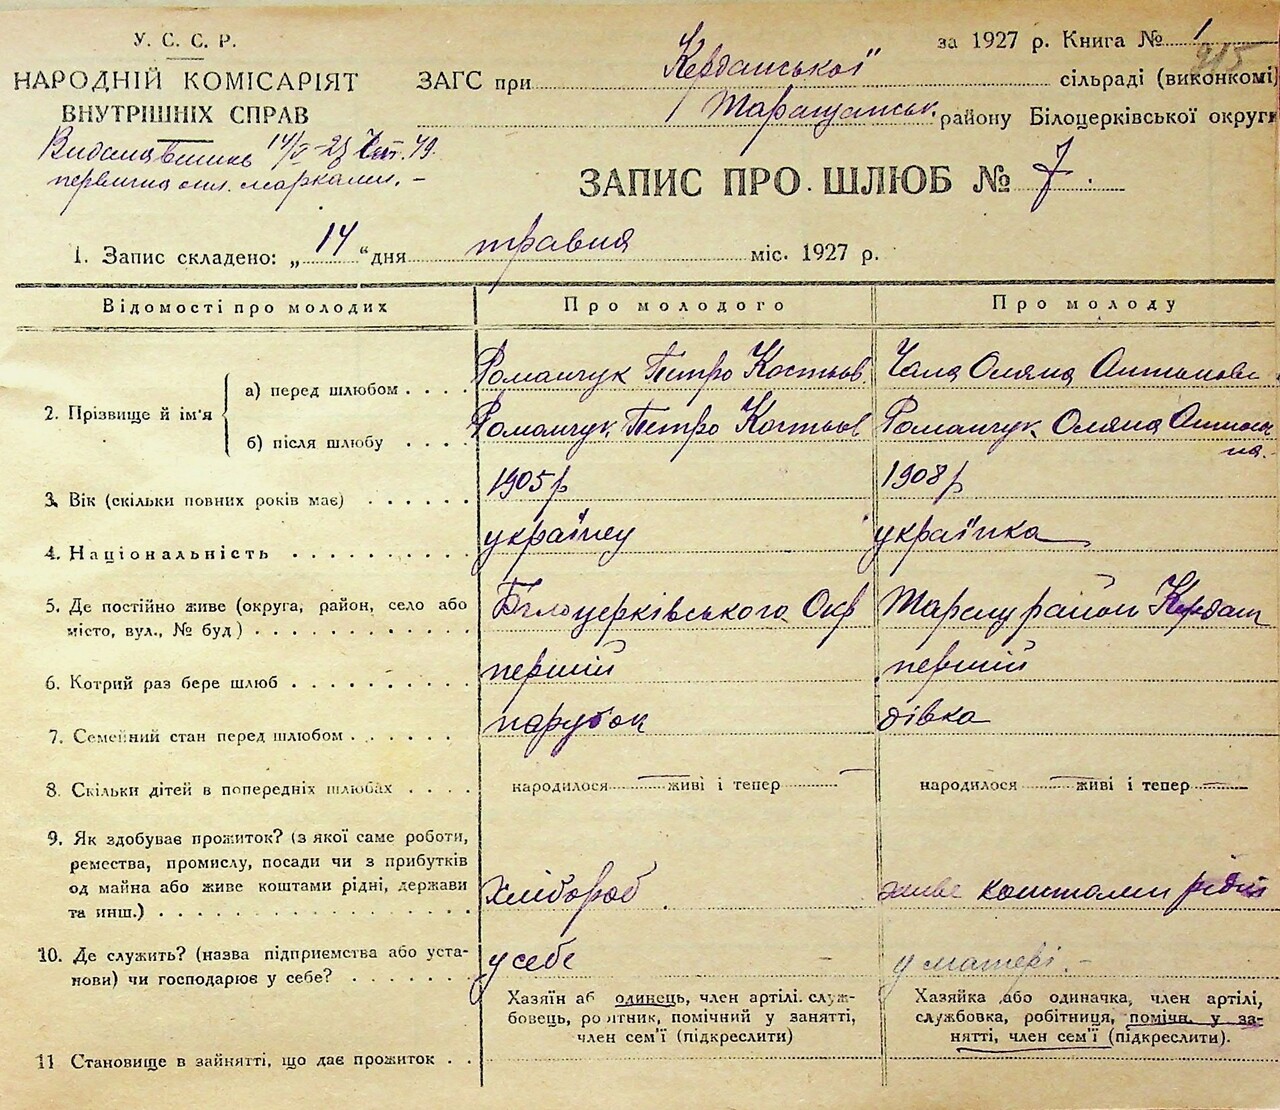 У. С. С. Р.
НАРОДНІЙ КОМІСАРІЯТ
ВНУТРІШНІХ СПРАВ
за 1927 р. Книга № 1
215
ЗАГС при Керданської сільраді (виконкомі)
Таращанськ. району Білоцерківської округи
14/V-27
марками. –
ЗАПИС ПРО ШЛЮБ № 7.
1. Запис складено: „14“ дня травня міс. 1927 р.
Відомості про молодих Про молодого Про молоду
2. Прізвище й ім'я
а) перед шлюбом . . . . Романчук Петро Костьов. Чала Оляна Антонове
б) після шлюбу . . . . Романчук Петро Костьов Романчук Оляна Антонов
на.
3. Вік (скільки повних років має) . . . . . . 1905 р 1908 р
4. Національність . . . . . . . . . . українец українка
5. Де постійно живе (округа, район, село або
місто, вул., № буд.) . . . . . . . . . . . . Білоцерківського Окр Таращ район Кердан
6. Котрий раз бере шлюб . . . . . . . . . . перший перший
7. Семейний стан перед шлюбом . . . . . . парубок дівка
8. Скільки дітей в попередніх шлюбах . . . . народилося — живі і тепер — народилося — живі і тепер —
9. Як здобуває прожиток? (з якої саме роботи,
ремества, промислу, посади чи з прибутків
од майна або живе коштами рідні, держави
та инш.) . . . . . . . . . . . . . . . . . хлібороб живе коштами рідні
10. Де служить? (назва підприємства або уста-
нови) чи господарює у себе? . . . . . . . у себе – у матері. –
Хазяїн або одинець, член артілі, служ-
бовець, робітник, помічний у занятті,
член сем'ї (підкреслити)
Хазяйка або одиначка, член артілі,
службовка, робітниця, помічн. у за-
нятті, член сем'ї (підкреслити).
11 Становище в зайнятті, що дає прожиток . .